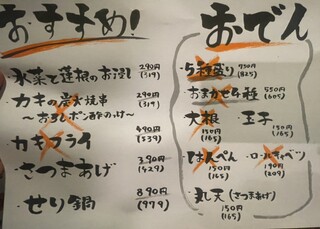 おすすめ!
・水菜と蓮根のお浸し 290円(319)
・カキの炭火焼串 290円(319)
〜おろしポン酢のっけ〜
・カキフライ 490円(539)
・さつまあげ 390円(429)
・せり鍋 890円(979)
おでん
・5種盛り 750円(825)
・おまかせ4種 550円(605)
・大根 150円(165) ・玉子 150円(165)
・はんぺん 150円(165) ・ロールキャベツ 190円(209)
・丸天(さつまあげ) 150円(165)